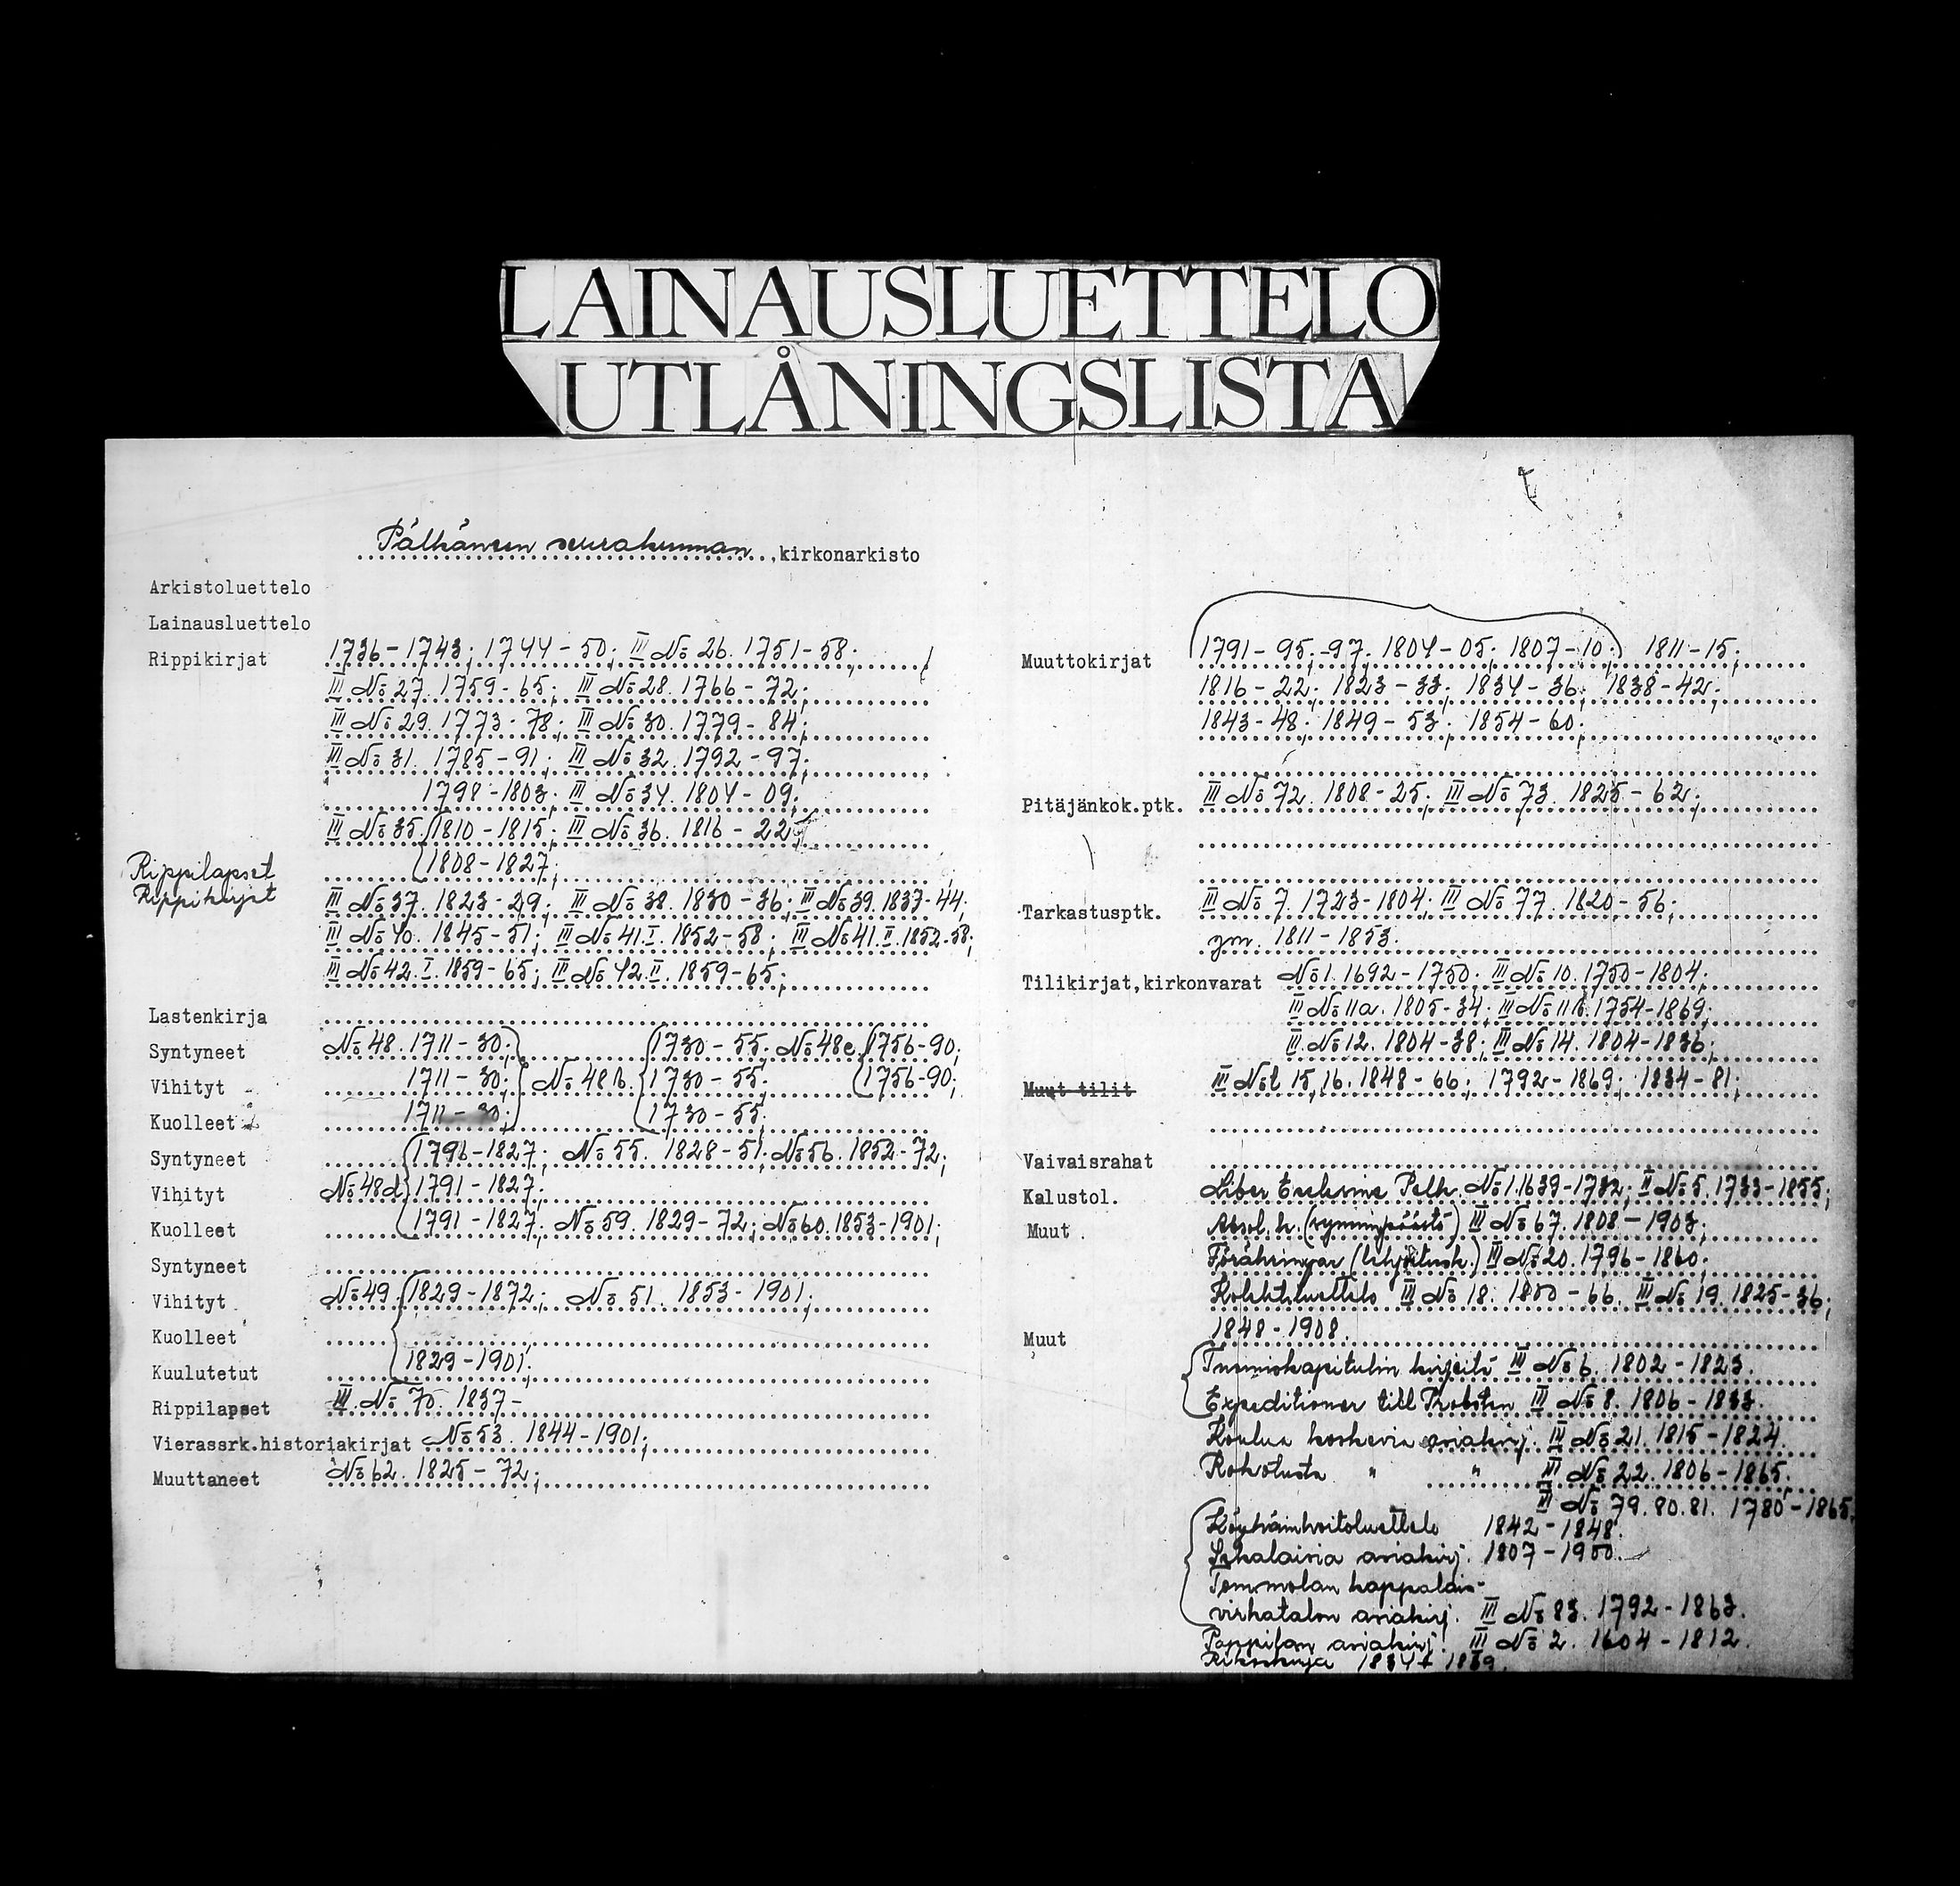 LAINAUSLUETTELO
UTLÅNINGSLISTA
Pälkäneen seurakunnan, kirkonarkisto
Arkistoluettelo
Lainausluettelo
Rippikirjat 1736-1743; 1744-50; III No 26. 1751-58;
III No 27. 1759-65; III No 28. 1766-72;
III No 29. 1773-78; III No 30. 1779-84;
III No 31. 1785-91; III No 32. 1792-97;
1798-1803; III No 34. 1804-09;
III No 35. 1810-1815; III No 36. 1816-22
Rippilapset 1808-1827;
Rippikirjat III No 37. 1823-29; III No 38. 1830-36; III No 39. 1837-44;
III No 40. 1845-51; III No 41.I. 1852-58; III No 41.II. 1852-58;
III No 42.I. 1859-65; III No 42.II. 1859-65;
Lastenkirja
Syntyneet No 48. 1711-30; 1730-55; No 48c 1756-90;
Vihityt 1711-30; No 48b. 1730-55; 1756-90;
Kuolleet 1711-30; 1730-55;
Syntyneet 1796-1827; No 55. 1828-51; No 56. 1852-72;
Vihityt No 48d 1791-1827;
Kuolleet 1791-1827; No 59. 1829-72; No 60. 1853-1901;
Syntyneet
Vihityt No 49. 1829-1872; No 51. 1853-1901;
Kuolleet
Kuulutetut 1829-1901;
Rippilapset III No 70. 1837-
Vierassrk.historiakirjat No 53. 1844-1901;
Muuttaneet No 62. 1825-72;
Muuttokirjat 1791-95; -97. 1804-05; 1807-10; 1811-15;
1816-22; 1823-33; 1834-36; 1838-42;
1843-48; 1849-53; 1854-60;
Pitäjänkok.ptk. III No 72. 1808-25; III No 73. 1825-62;
Tarkastusptk. III No 7. 1723-1804; III No 77. 1820-56;
ym. 1811-1853.
Tilikirjat,kirkonvarat No 1. 1692-1750; III No 10. 1750-1804;
III No 11a. 1805-34; III No 11b. 1754-1869;
III No 12. 1804-38; III No 14. 1804-1836;
Muut tilit III No 15,16. 1848-66; 1792-1869; 1834-81;
Vaivaisrahat
Kalustol. Liber Ecclesiae Pelk. No 1. 1639-1732; II No 5. 1733-1855;
Muut Absol.k. (synninpäästö) III No 67. 1808-1903;
III No 20. 1796-1860;
Kolehtiluettelo III No 18. 1800-66. III No 19. 1825-36;
Muut 1848-1908.
Tuomiokapitulin kirjeitä III No 6. 1802-1823.
Expeditioner till Probsten III No 8. 1806-1833.
Koulua koskevia asiakirj. III No 21. 1815-1824.
Rokotusta " " III No 22. 1806-1865.
III No 79.80.81. 1780-1865.
Köyhäinhoitoluettelo 1842-1848.
Sekalaisia asiakirj. 1807-1900.
Tommolan kappalais-
virkatalon asiakirj. III No 83. 1792-1863.
Pappilan asiakirj. III No 2. 1604-1812.
Rikoskirja